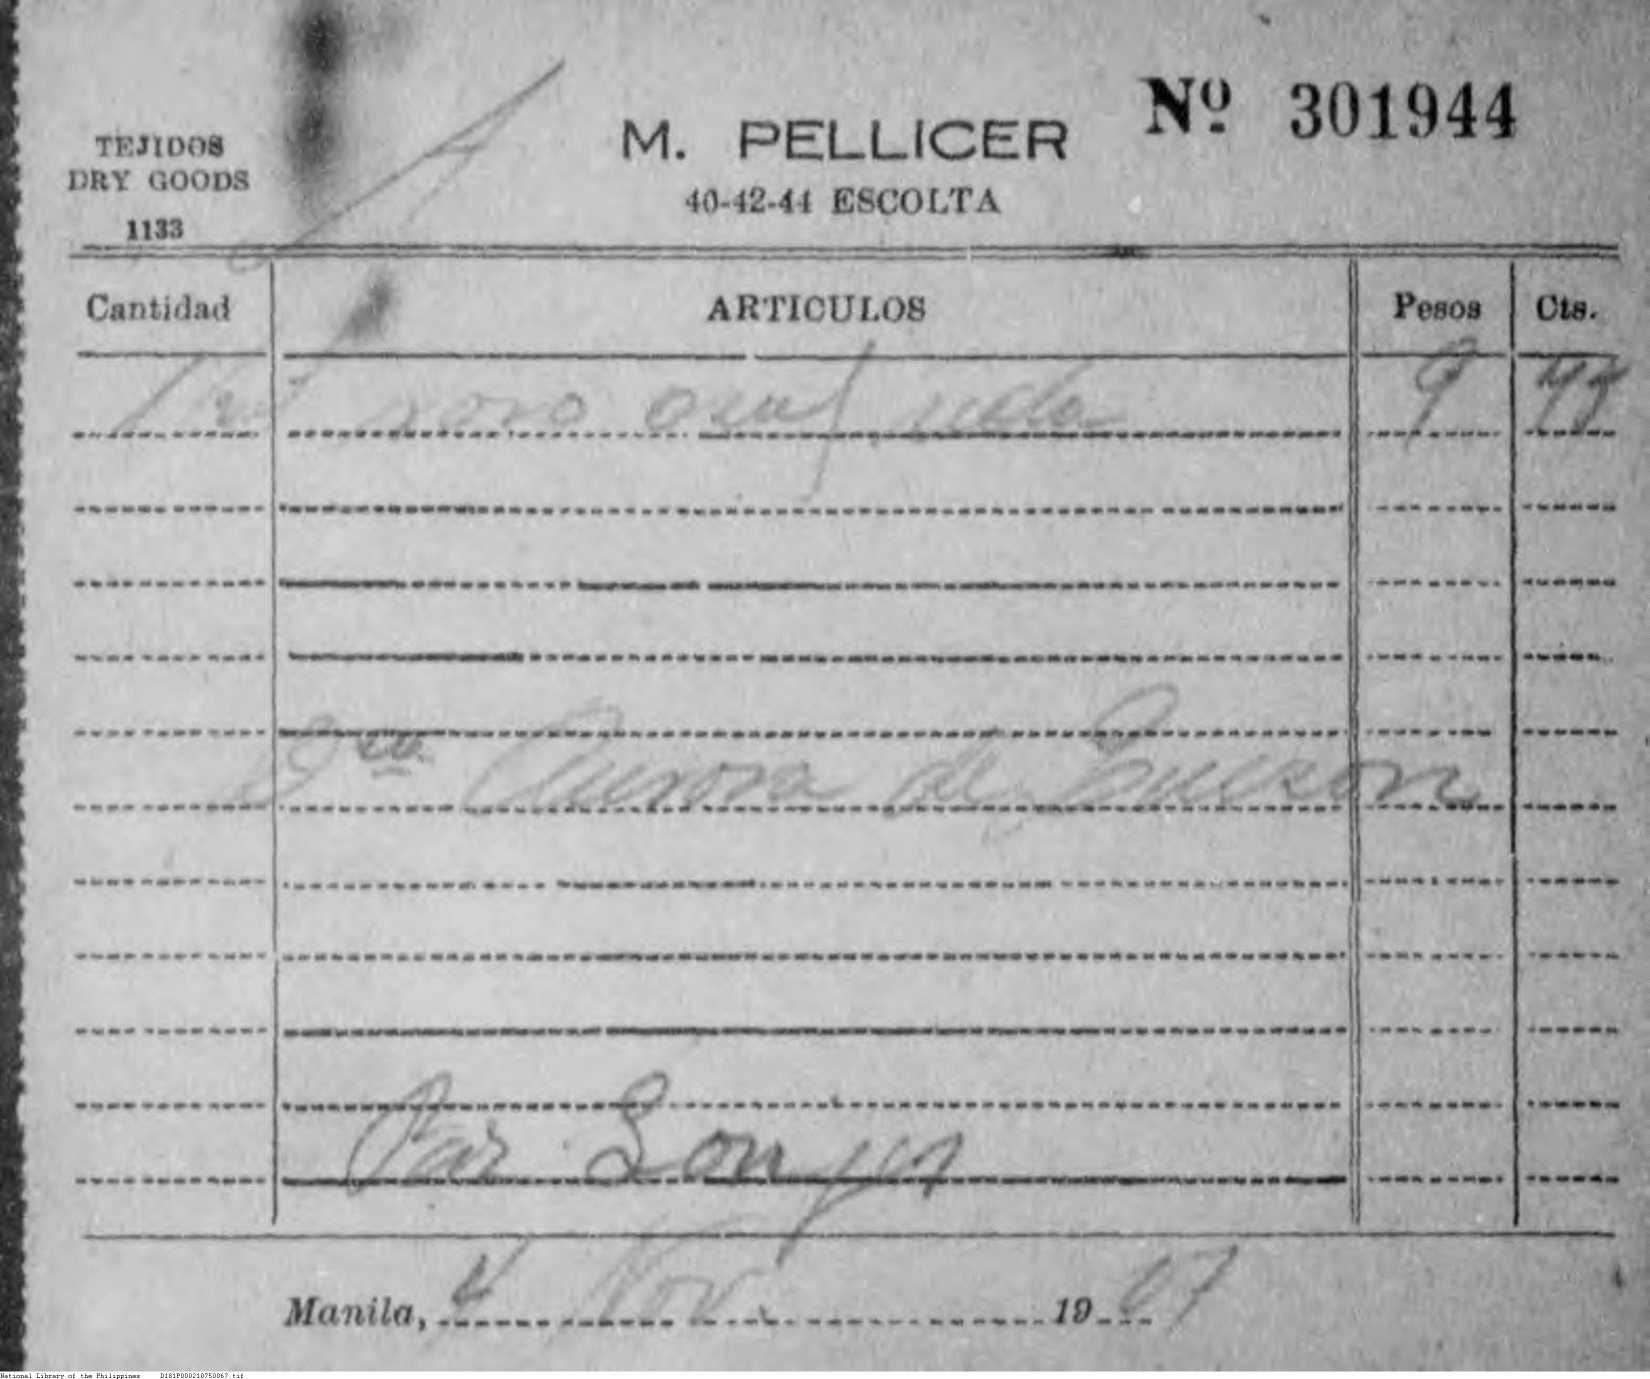 TEJIDOS
DRY GOODS
1133
M. PELLICER
40-42-44 ESCOLTA
Nº 301944
Cantidad ARTICULOS Pesos Cts.
9
Dra Aurora de Quezon
Manila, 4 Nov 19
National Library of the Philippines D181P000210750067.tif